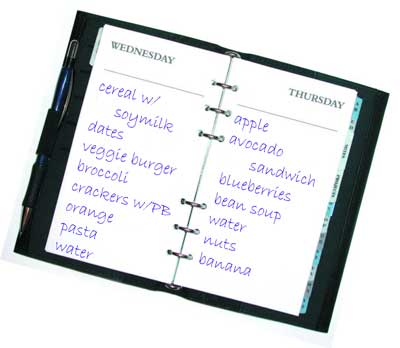 WEDNESDAY
cereal w/
soymilk
dates
veggie burger
broccoli
crackers w/PB
orange
pasta
water
THURSDAY
apple
avocado
sandwich
blueberries
bean soup
water
nuts
banana